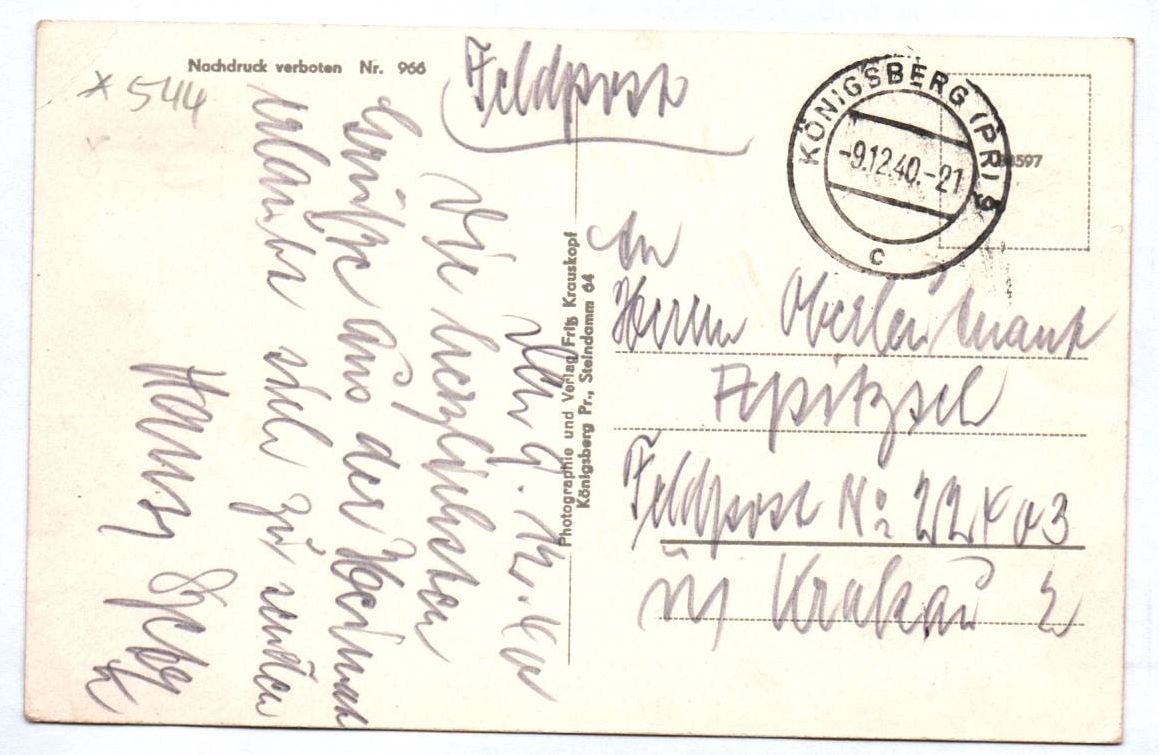 Nachdruck verboten Nr. 966
* 544
Feldpost
KÖNIGSBERG (PR) 9
-9.12.40.-21
c
597
Photographie und Verlag Fritz Krauskopf
Königsberg Pr., Steindamm 64
An
Herrn Oberleutnant
Feldpost No 22403
in Krakau 2
9.12.40
Die herzlichsten
Grüße aus der Heimat
erlaubt sich zu senden